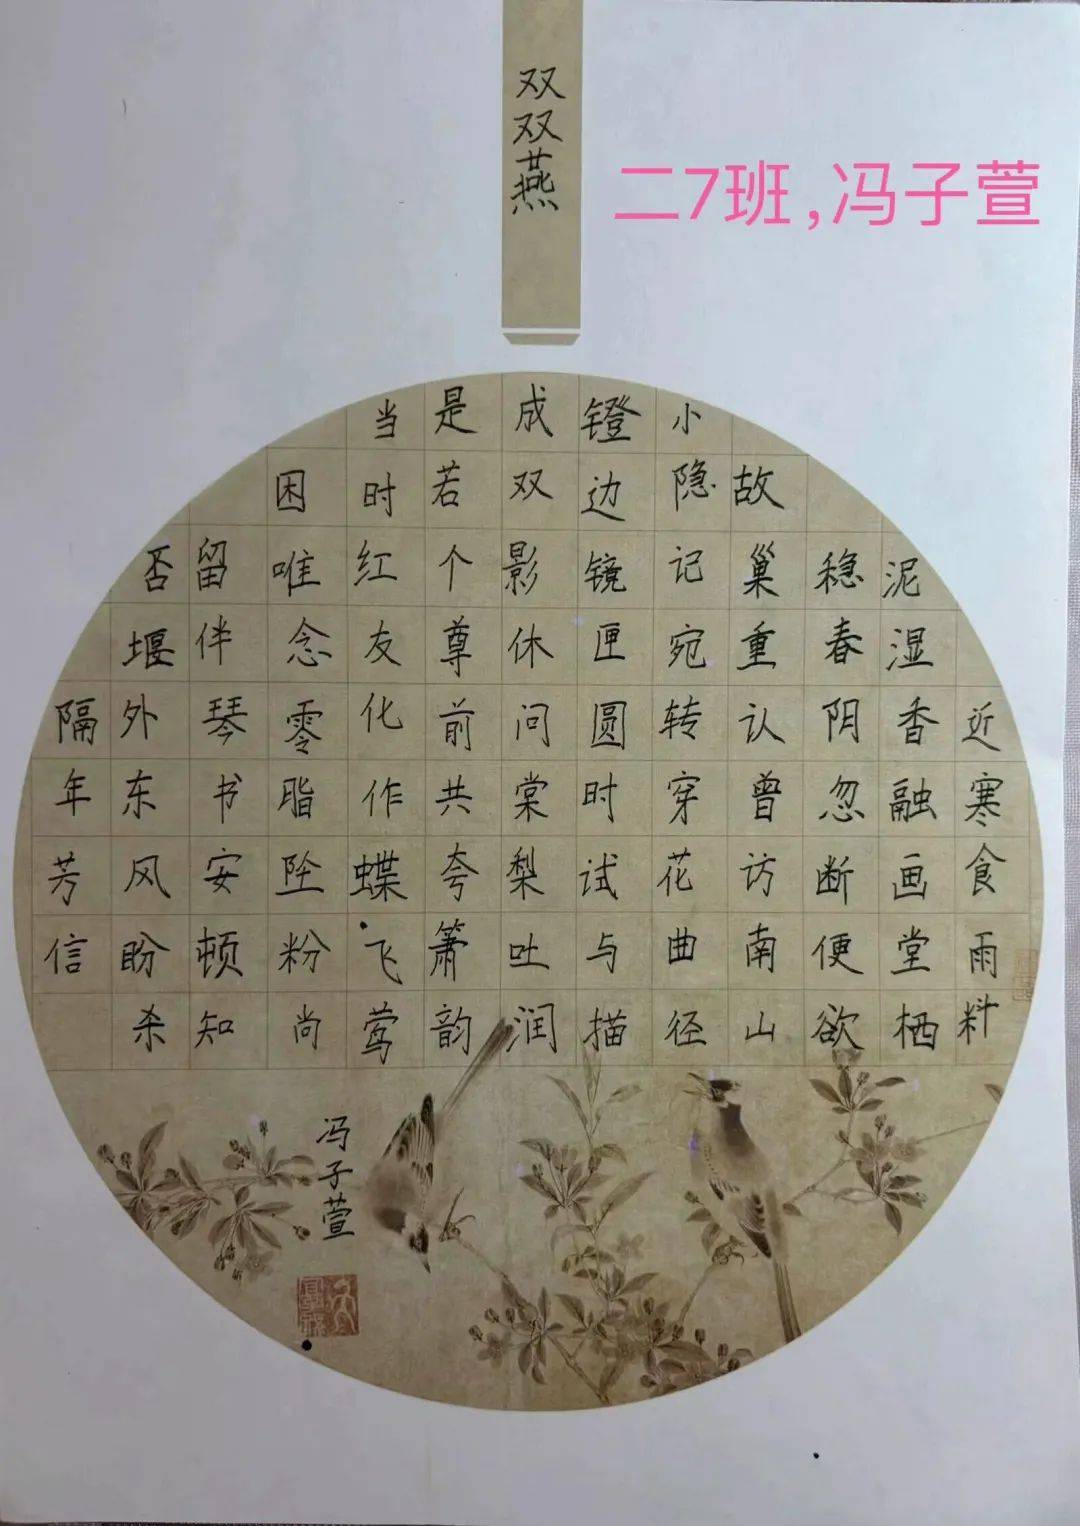 双双燕
二7班,冯子萱
近寒食雨料
泥湿香融画堂栖
稳春阴忽断便欲
故巢重认曾访南山
小隐记宛转穿花曲径
镫边镜匣圆时试与描
成双影休问棠梨吐润
是若个尊前共夸箫韵
当时红友化作蝶飞莺
困唯念零脂坠粉尚
留伴琴书安顿知
否堰外东风盼杀
隔年芳信
冯子萱